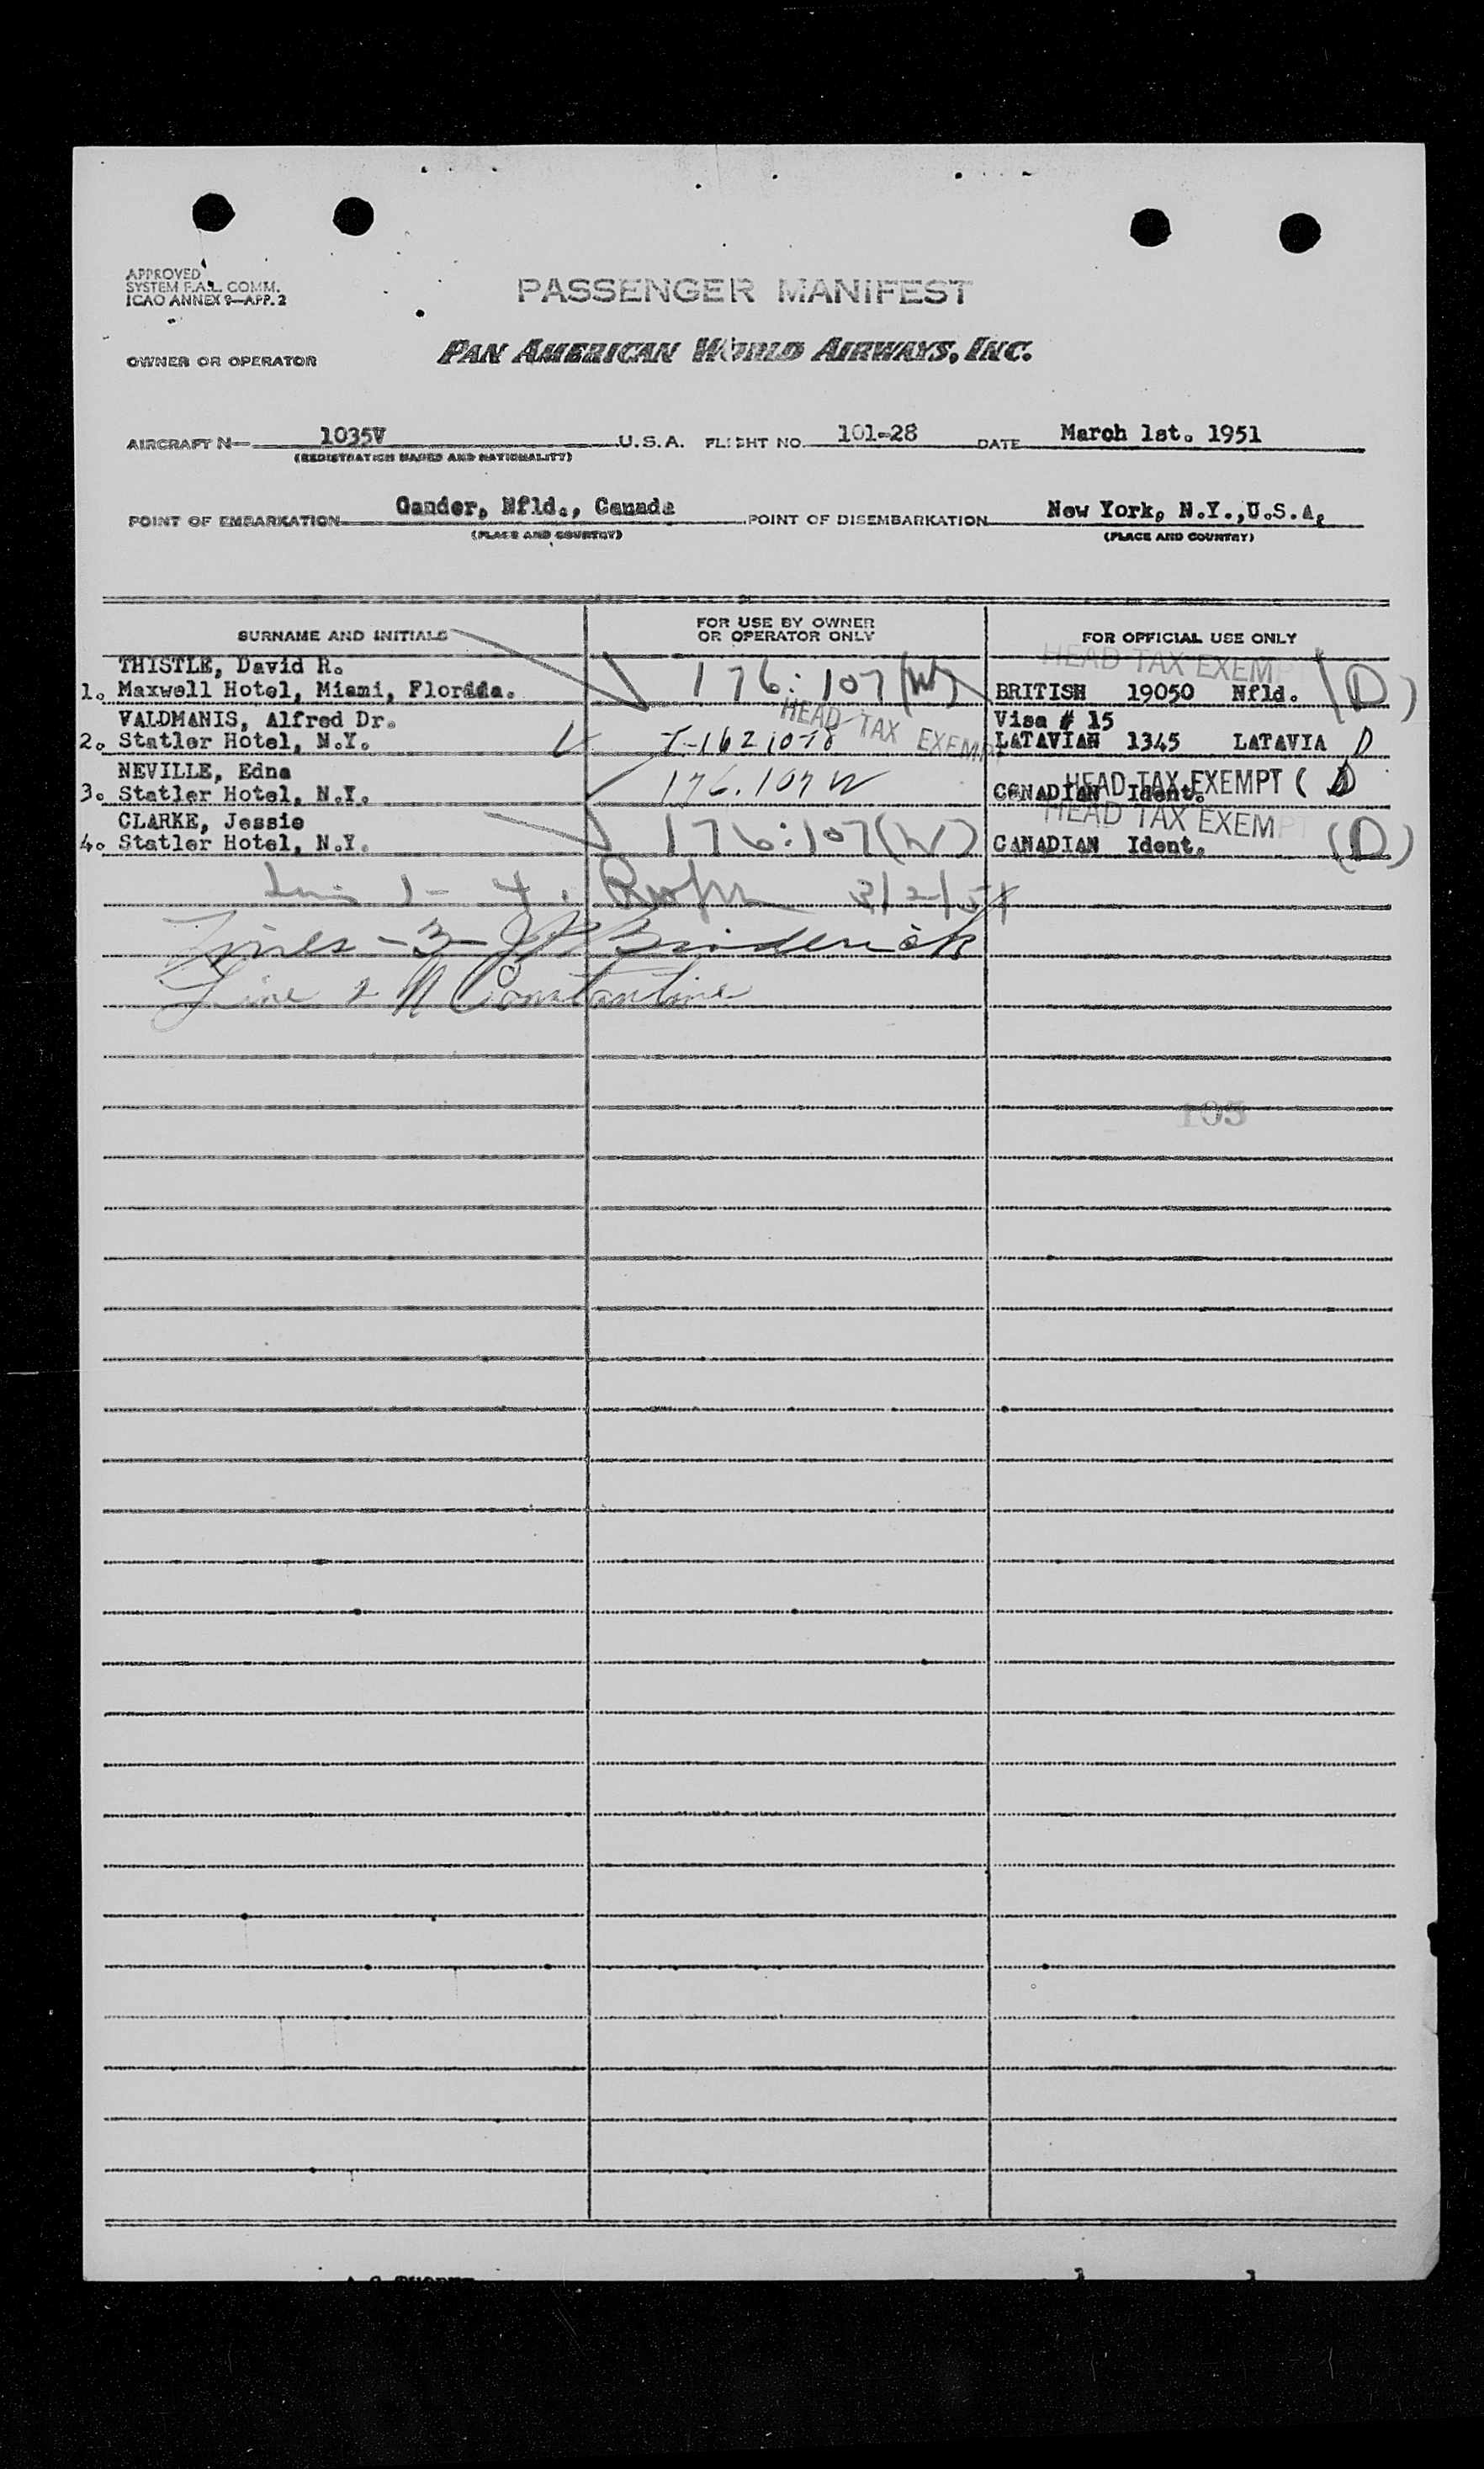 APPROVED
SYSTEM F.A.L. COMM.
ICAO ANNEX 9—APP. 2
PASSENGER MANIFEST
OWNER OR OPERATOR PAN AMERICAN WORLD AIRWAYS, INC.
AIRCRAFT N— 1035V U.S.A. FLIGHT NO. 101-28 DATE March 1st. 1951
(REGISTRATION MARKS AND NATIONALITY)
POINT OF EMBARKATION Gander, Nfld., Canada POINT OF DISEMBARKATION New York, N.Y.,U.S.A.
(PLACE AND COUNTRY) (PLACE AND COUNTRY)
SURNAME AND INITIALS FOR USE BY OWNER OR OPERATOR ONLY FOR OFFICIAL USE ONLY
THISTLE, David R. HEAD TAX EXEMPT
1. Maxwell Hotel, Miami, Florida. 176:107(W) BRITISH 19050 Nfld. (D)
VALDMANIS, Alfred Dr. HEAD TAX EXEMPT Visa # 15
2. Statler Hotel, N.Y. LATAVIAN 1345 LATAVIA D
NEVILLE, Edna HEAD TAX EXEMPT
3. Statler Hotel, N.Y. 176.107 W CANADIAN Ident. ( D
CLARKE, Jessie HEAD TAX EXEMPT
4. Statler Hotel, N.Y. 176:107(W) CANADIAN Ident. (D)
1- 4. 3/2/51
Lines -3- Broderick
Line 2 N Constantine
105